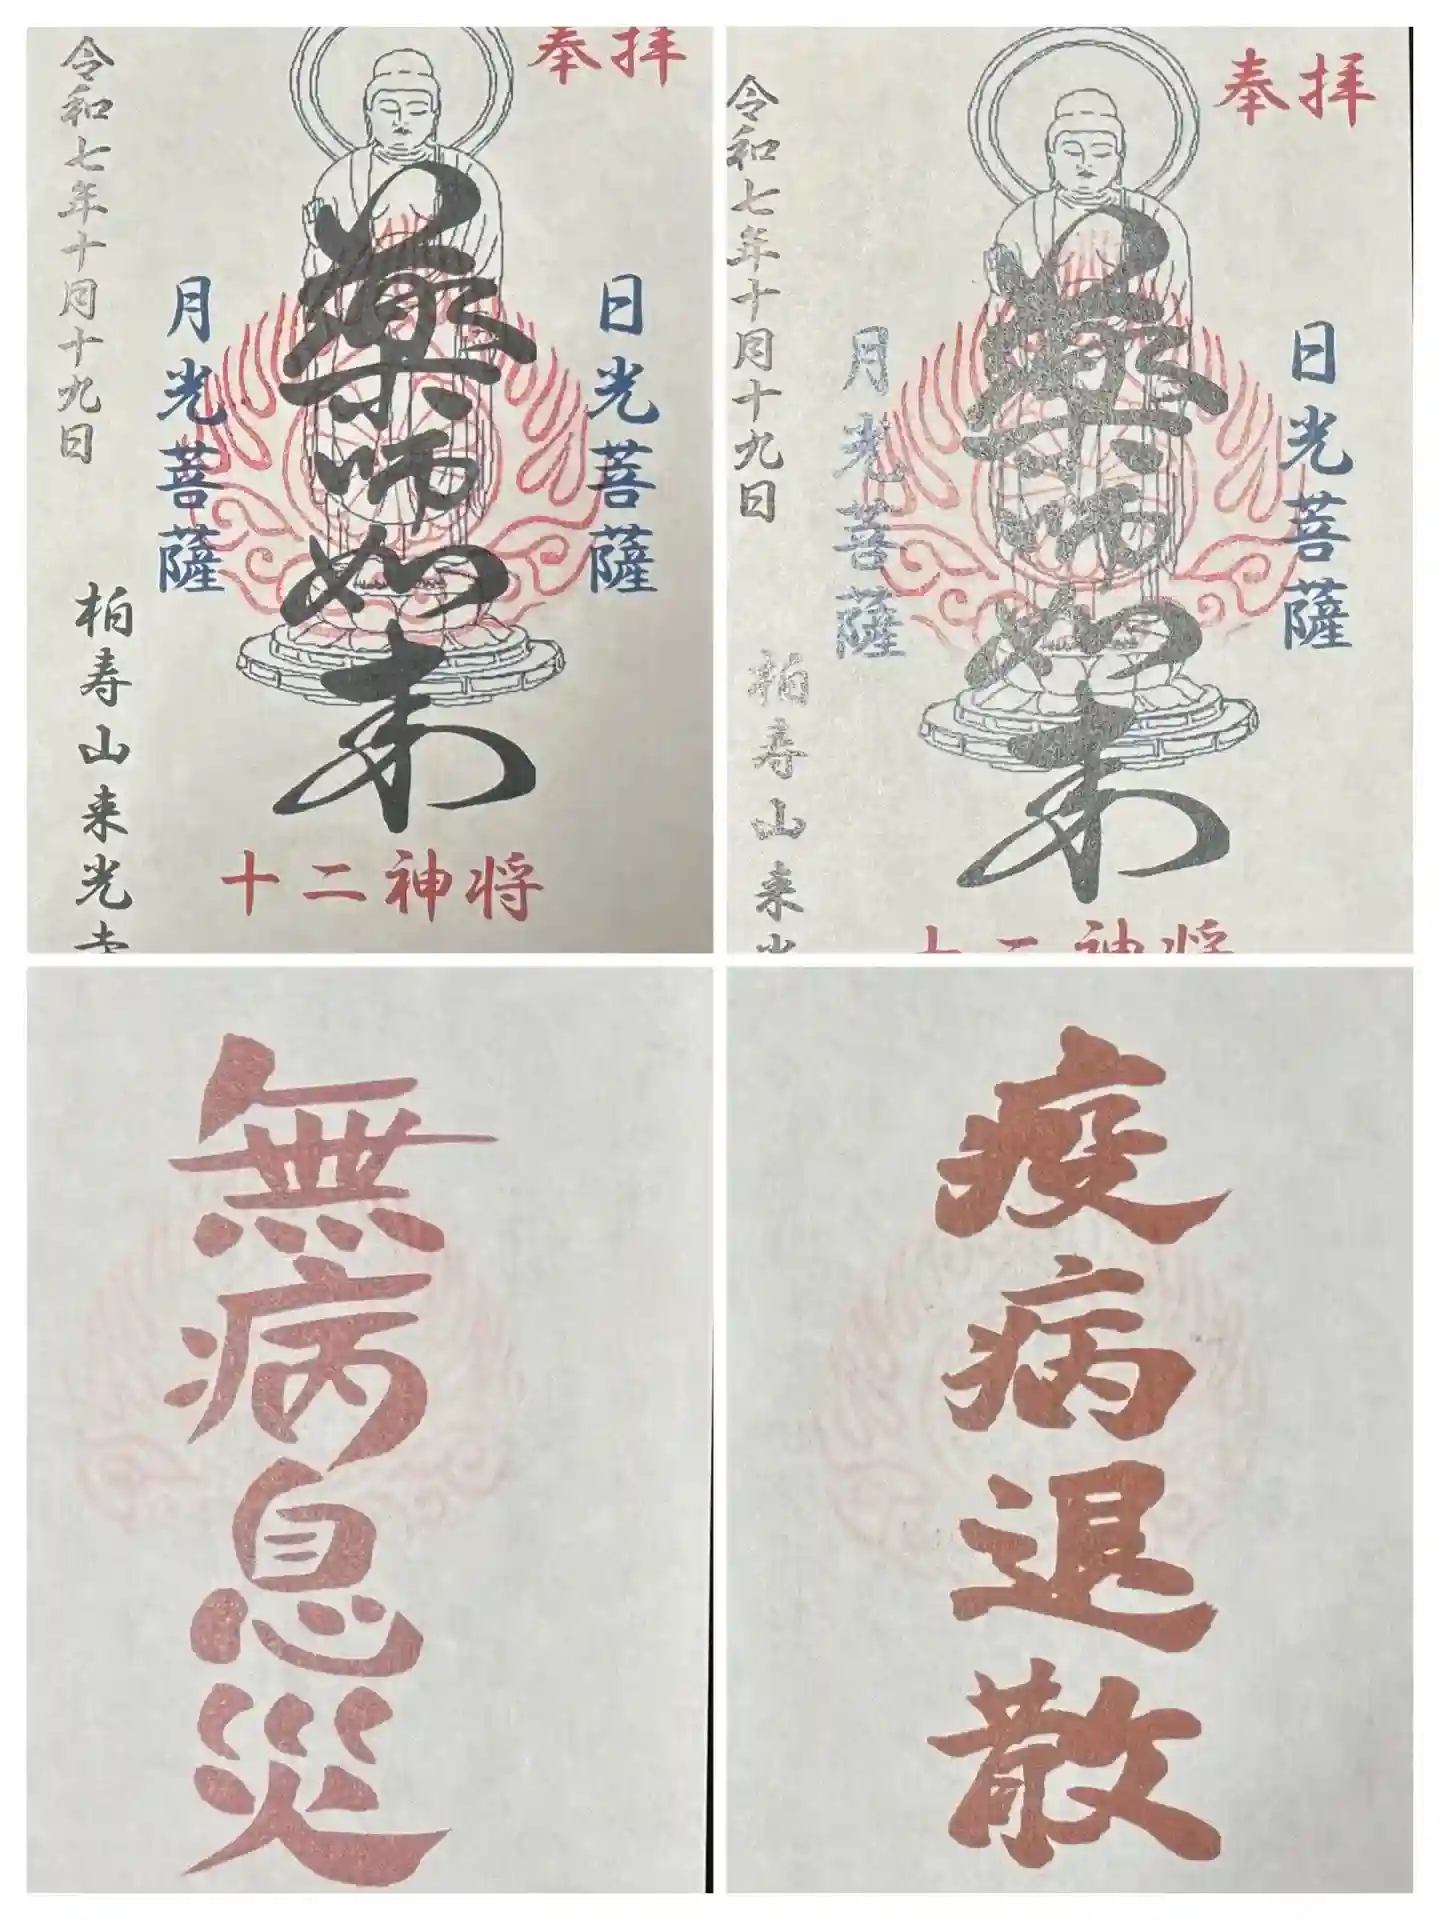 奉拝
日光菩薩
薬師如来
月光菩薩
十二神将
令和七年十月十九日
柏寿山来光寺
奉拝
日光菩薩
薬師如来
月光菩薩
十二神将
令和七年十月十九日
柏寿山来光
無病息災
疫病退散